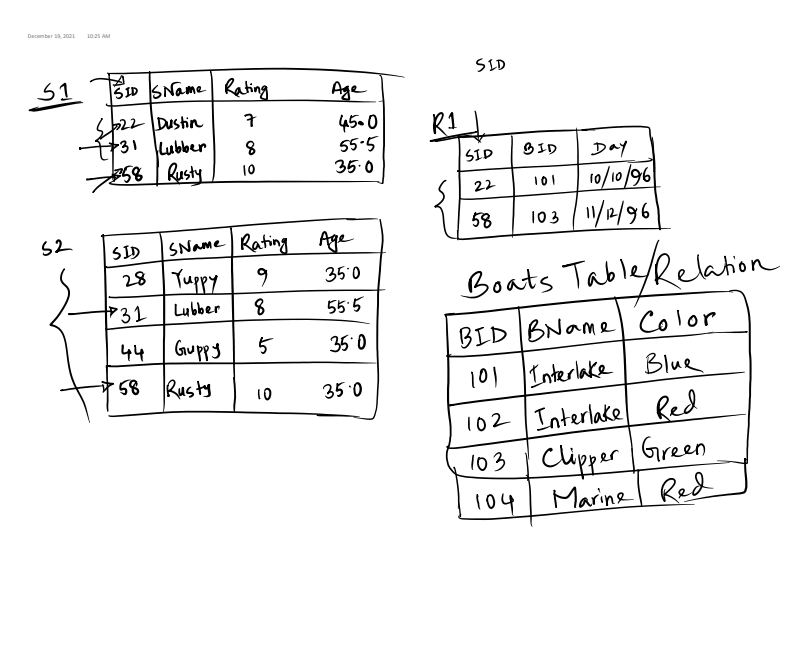 December 19, 2021 10:25 AM
S1
SID SName Rating Age
22 Dustin 7 45.0
31 Lubber 8 55.5
58 Rusty 10 35.0
S2
SID SName Rating Age
28 Yuppy 9 35.0
31 Lubber 8 55.5
44 Guppy 5 35.0
58 Rusty 10 35.0
SID
R1
SID BID Day
22 101 10/10/96
58 103 11/12/96
Boats Table/Relation
BID BName Color
101 Interlake Blue
102 Interlake Red
103 Clipper Green
104 Marine Red